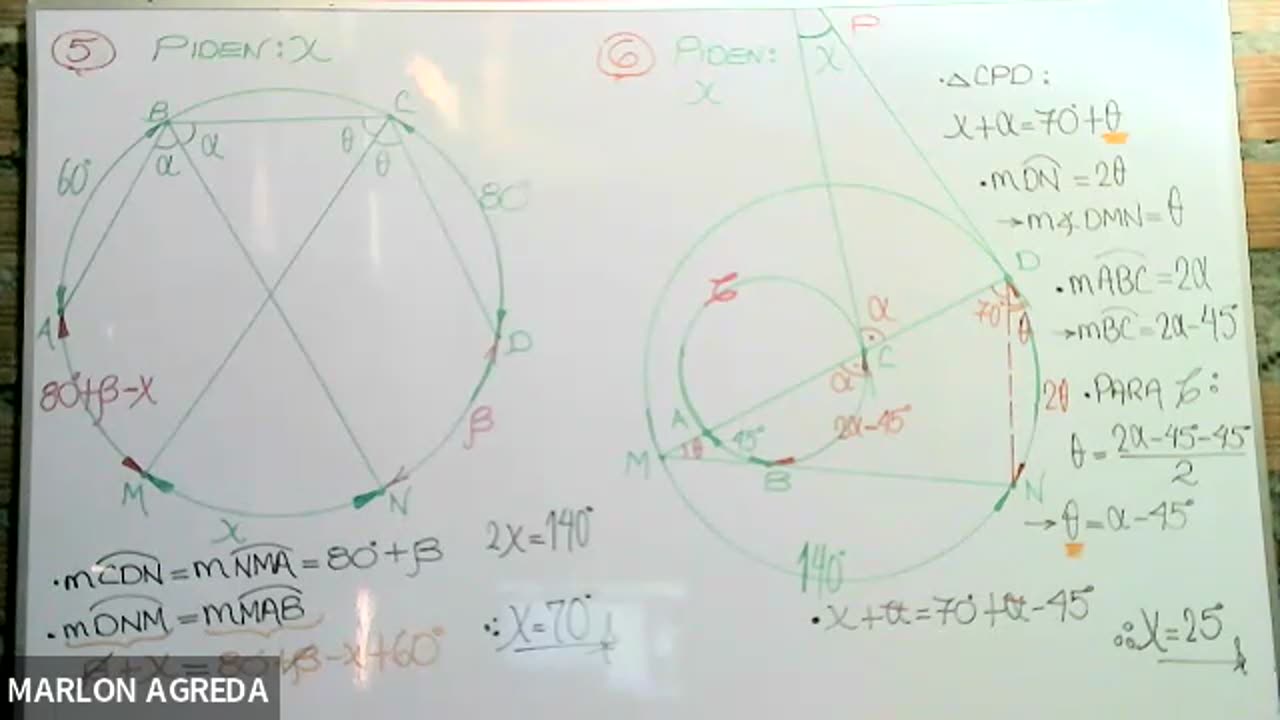 5 PIDEN: X
B
C
α
α
θ
θ
60°
80°
A
D
80°+β-X
β
M
N
X
·mCDN = mNMA = 80°+β
·mDNM = mMAB
β+X = 80°+β-X+60°
2X=140°
∴ X=70°
6 PIDEN:
X
P
X
D
α
70°
θ
C
α
2θ
A
45°
2α-45°
M
θ
B
N
140°
·△CPD:
X+α=70°+θ
·mDN = 2θ
→m∡DMN=θ
·mABC=2α
→mBC=2α-45°
·PARA C:
θ = 2α-45-45°
2
→θ=α-45°
·X+α=70°+α-45°
∴X=25°
MARLON AGREDA